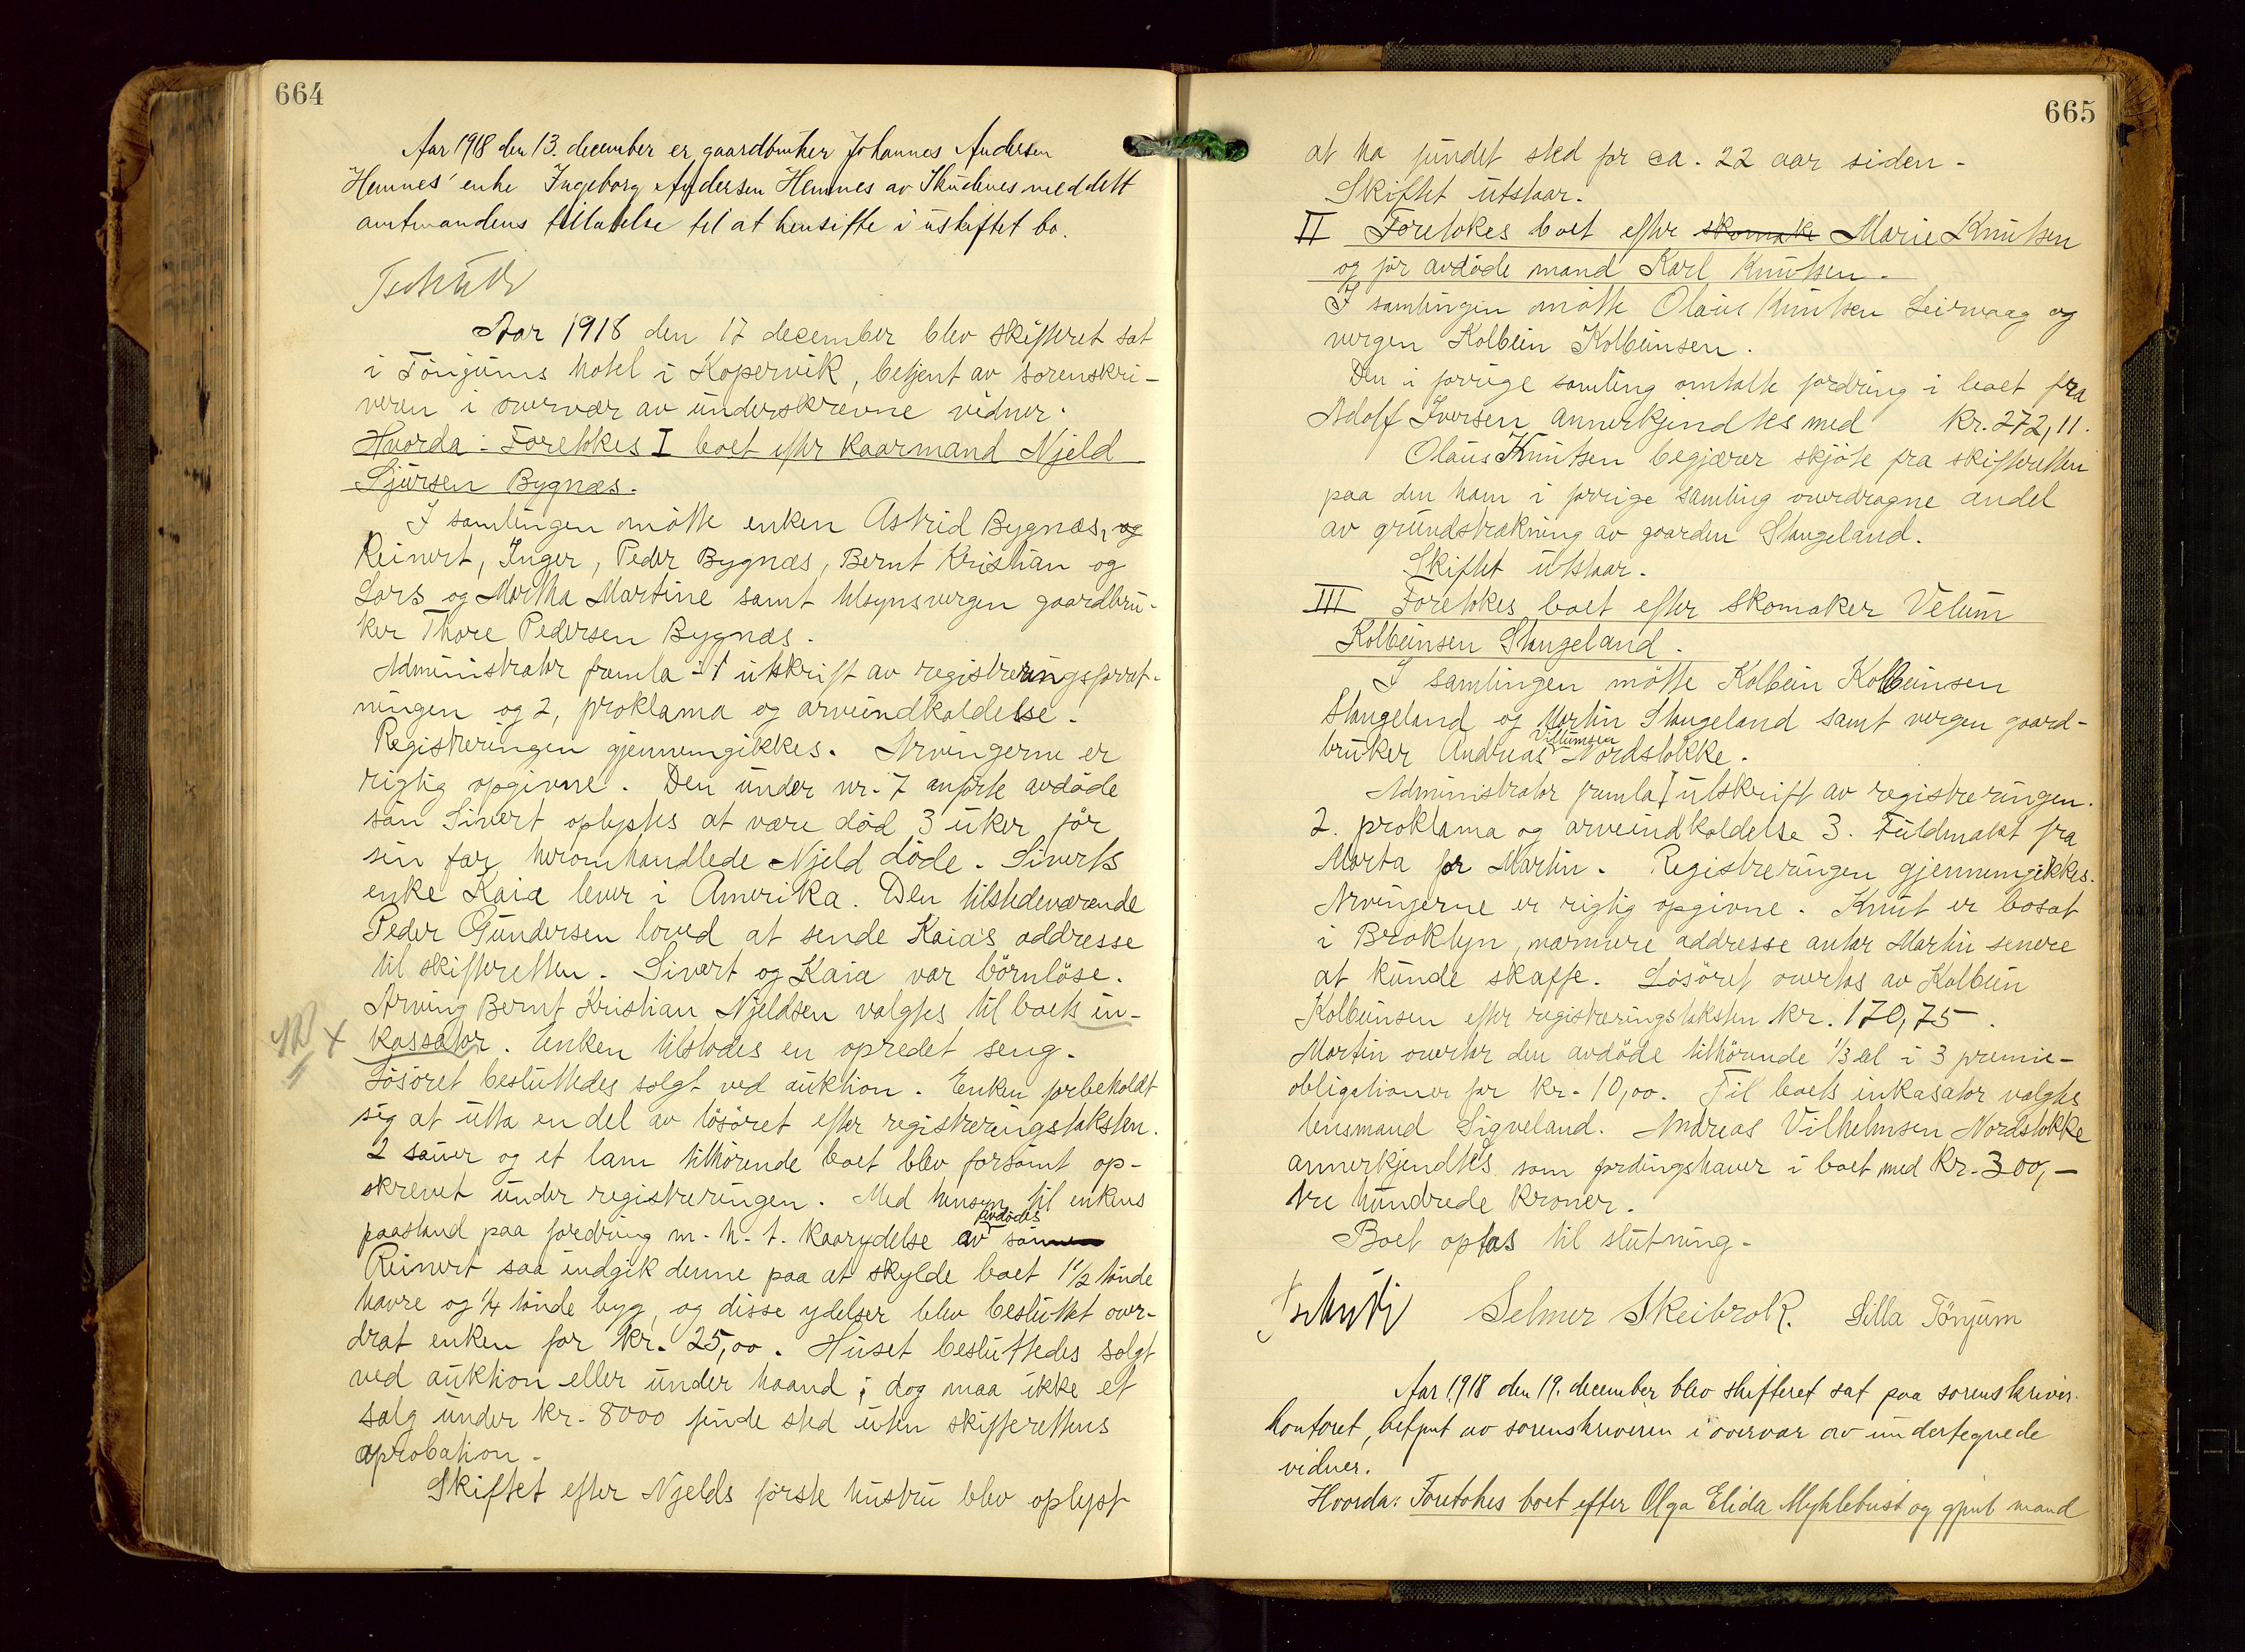 664
Aar 1918 den 13. december er gaardbruker Johannes Andersen
Hemnes' enke Ingeborg Andersen Hemnes av Skudenes meddelt
amtmandens tillatelse til at hensitte i uskiftet bo.
Aar 1918 den 17 december blev skifteret sat
i Tönjums hotel i Kopervik, betjent av sorenskri-
veren i overvær av underskrevne vidner.
Hvorda: Foretokes I boet efter kaarmand Njeld
Sjursen Bygnæs.
I samlingen mötte enken Astrid Bygnæs, og
Reinert, Inger, Peder Bygnæs, Bernt Kristian og
Lars og Martha Martine samt tilsynsvergen gaardbru-
ker Thore Pedersen Bygnæs.
Administrator framla 1 utskrift av registreringsforret-
ningen og 2, proklama og arveindkaldelse.
Registreringen gjennemgikkes. Arvingerne er
rigtig opgivne. Den under nr. 7 anförte avdöde
sön Sivert oplystes at være död 3 uker för
sin far heromhandlede Njeld döde. Siverts
enke Kaia lever i Amerika. Den tilstedeværende
Peder Gundersen loved at sende Kaia's addresse
til skifteretten. Sivert og Kaia var börnlöse.
Arving Bernt Kristian Njeldsen valgtes til boets in-
x kassator. Enken tilstodes en opredet seng.
Lösöret besluttedes solgt ved auktion. Enken forbeholdt
sig at utta en del av lösöret efter registreringstaksten.
2 sauer og et lam tilhörende boet blev forsömt op-
skrevet under registreringen. Med hensyn til enkens
avdödes
paastand paa fordring m. h. t. kaarydelse av sönnen
Reinert saa indgik denne paa at skylde boet 1 1/2 tönde
havre og 1/4 tönde byg, og disse ydelser blev besluttet over-
drat enken for kr. 25,00. Huset besluttedes solgt
ved auktion eller under haand; dog maa ikke et
salg under kr. 8000 finde sted uten skifterettens
aprobation.
Skiftet efter Njelds förste hustru blev oplyst
665
at ha fundet sted for ca. 22 aar siden.
Skiftet utstaar.
II Foretokes boet efter skomake Marie Knutsen
og för avdöde mand Karl Knutsen.
I samlingen mötte Olaus Knutsen Leirvaag og
vergen Kolbein Kolbeinsen.
Den i forrige samling omtalte fordring i boet fra
Adolf Iversen annerkjendtes med kr. 272,11.
Olaus Knutsen begjærer skjöte fra skifteretten
paa den ham i forrige samling overdragne andel
av grundstrækning av gaarden Stangeland.
Skiftet utstaar.
III Foretokes boet efter skomaker Velum
Kolbeinsen Stangeland.
I samlingen mötte Kolbein Kolbeinsen
Stangeland og Martin Stangeland samt vergen gaard-
Villumsen
bruker Andreas Nordstokke.
Administrator framla 1 utskrift av registreringen.
2. proklama og arveindkaldelse 3. Fuldmakt fra
Marta for Martin. Registreringen gjennemgikkes.
Arvingerne er rigtig opgivne. Knut er bosat
i Broklyn, nærmere addresse antar Martin senere
at kunde skaffe. Lösöret overtas av Kolbein
Kolbeinsen efter registreringstaksten kr. 170,75.
Martin overtar den avdöde tilhörende 1/3 del i 3 premie-
obligationer for kr. 10,00. Til boets inkasator valgtes
lensmand Sigveland. Andreas Vilhelmsen Nordstokke
annerkjendtes som fordringshaver i boet med kr. 300,-
tre hundrede kroner.
Boet optas til slutning.
Selmer Skeibrok. Silla Tönjum
Aar 1918 den 19. december blev skifteret sat paa sorenskriver-
kontoret, betjent av sorenskriveren i overvær av undertegnede
vidner.
Hvorda: Foretokes boet efter Olga Elida Myklebust og gjenl. mand